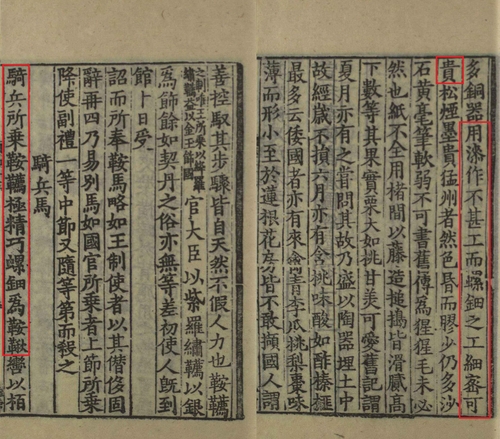 多銅器用漆作不甚工而螺鈿之工細密可
貴松煙墨貴猛州者然色昏而膠少仍多沙
石黃毫筆軟弱不可書舊傳爲猩猩毛未必
然也紙不全用楮間以藤造搥搗皆滑膩高
下數等其果實栗大如桃甘美可愛舊記謂
夏月亦有之嘗問其故乃盛以陶器埋土中
故經歲不損六月亦有含桃味酸如酢榛榧
最多云倭國者亦有來禽青李瓜桃梨棗味
薄而形小至於蓮根花房皆不敢擷國人謂
善控馭其步驟皆自天然不假人力也鞍韉
之制唯王所乘以緋羅繡韉益以金玉餙國官大臣以紫羅繡韉以銀
爲餙餘如契丹之俗亦無等差初使人既到
館卜日受
詔而所奉鞍馬略如王制使者以其僭侈固
辭再四乃易别馬如國官所乘者上節所乘
降使副禮一等中節又隨等第而殺之
騎兵馬
騎兵所乘鞍韉極精巧螺鈿爲鞍韀轡以栢